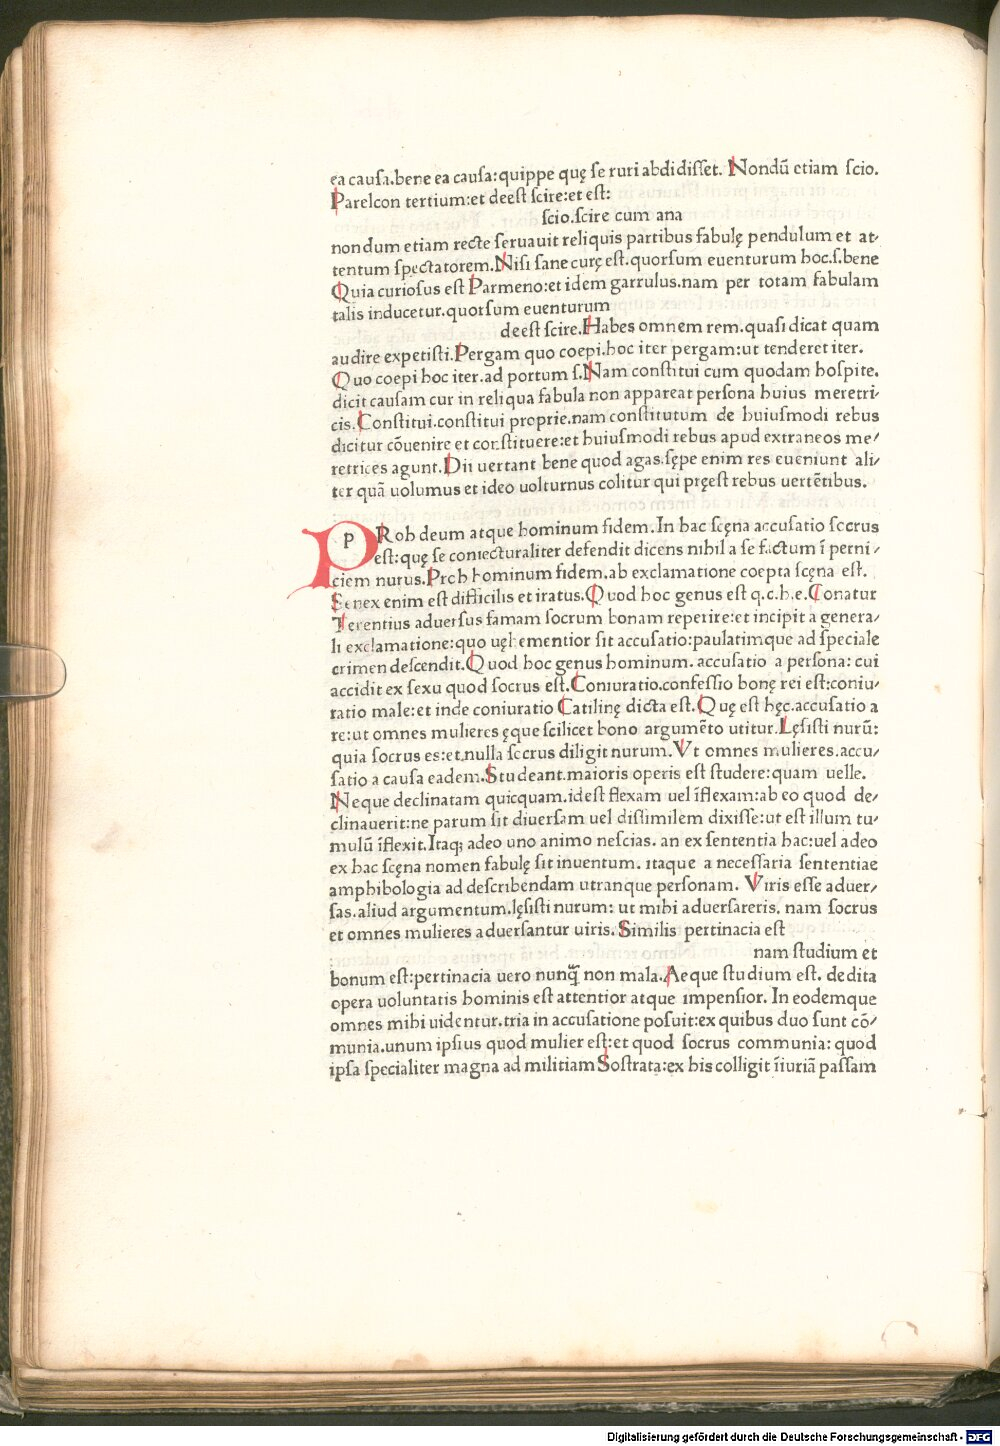 ea causa.bene ea causa:quippe quę se ruri abdidisset. Nondū etiam scio.
Parelcon tertium:et deest scire:et est:
scio.scire cum ana
nondum etiam recte seruauit reliquis partibus fabulę pendulum et at-
tentum spectatorem.Nisi sane curę est.quorsum euenturum hoc.s.bene
Quia curiosus est Parmeno:et idem garrulus.nam per totam fabulam
talis inducetur.quorsum euenturum
deest scire.Habes omnem rem.quasi dicat quam
audire expetisti.Pergam quo coepi.hoc iter pergam:ut tenderet iter.
Quo coepi hoc iter.ad portum s.Nam constitui cum quodam hospite.
dicit causam cur in reliqua fabula non appareat persona huius meretri-
cis.Constitui.constitui proprie.nam constitutum de huiusmodi rebus
dicitur cōuenire et constituere:et huiusmodi rebus apud extraneos me-
retrices agunt.Dii uertant bene quod agas.sępe enim res eueniunt ali-
ter quā uolumus et ideo uolturnus colitur qui pręest rebus uertētibus.
P
PRoh deum atque hominum fidem.In hac scęna accusatio socrus
est:quę se coniecturaliter defendit dicens nihil a se factum ī perni-
ciem nurus.Proh hominum fidem.ab exclamatione coepta scęna est.
Senex enim est difficilis et iratus.Quod hoc genus est q.c.h.e.Conatur
Terentius aduersus famam socrum bonam reperire:et incipit a genera-
li exclamatione:quo uęhementior sit accusatio:paulatimque ad speciale
crimen descendit.Quod hoc genus hominum. accusatio a persona: cui
accidit ex sexu quod socrus est.Coniuratio.confessio bonę rei est:coniu-
ratio male:et inde coniuratio Catilinę dicta est.Quę est hęc.accusatio a
re:ut omnes mulieres ęque scilicet bono argumēto utitur.Lęsisti nurū:
quia socrus es:et nulla socrus diligit nurum.Vt omnes mulieres.accu-
satio a causa eadem.Studeant.maioris operis est studere:quam uelle.
Neque declinatam quicquam.id est flexam uel īflexam:ab eo quod de-
clinauerit:ne parum sit diuersam uel dissimilem dixisse:ut est illum tu-
mulū īflexit.Itaq; adeo uno animo nescias. an ex sententia hac:uel adeo
ex hac scęna nomen fabulę sit inuentum. itaque a necessaria sententiae
amphibologia ad describendam utranque personam. Viris esse aduer-
sas.aliud argumentum.lęsisti nurum: ut mihi aduersareris. nam socrus
et omnes mulieres aduersantur uiris.Similis pertinacia est
nam studium et
bonum est:pertinacia uero nunq̄ non mala.Aeque studium est. dedita
opera uoluntatis hominis est attentior atque impensior. In eodemque
omnes mihi uidentur.tria in accusatione posuit:ex quibus duo sunt cō-
munia.unum ipsius quod mulier est:et quod socrus communia: quod
ipsa specialiter magna ad militiam Sostrata:ex his colligit īiuriā passam
Digitalisierung gefördert durch die Deutsche Forschungsgemeinschaft - DFG